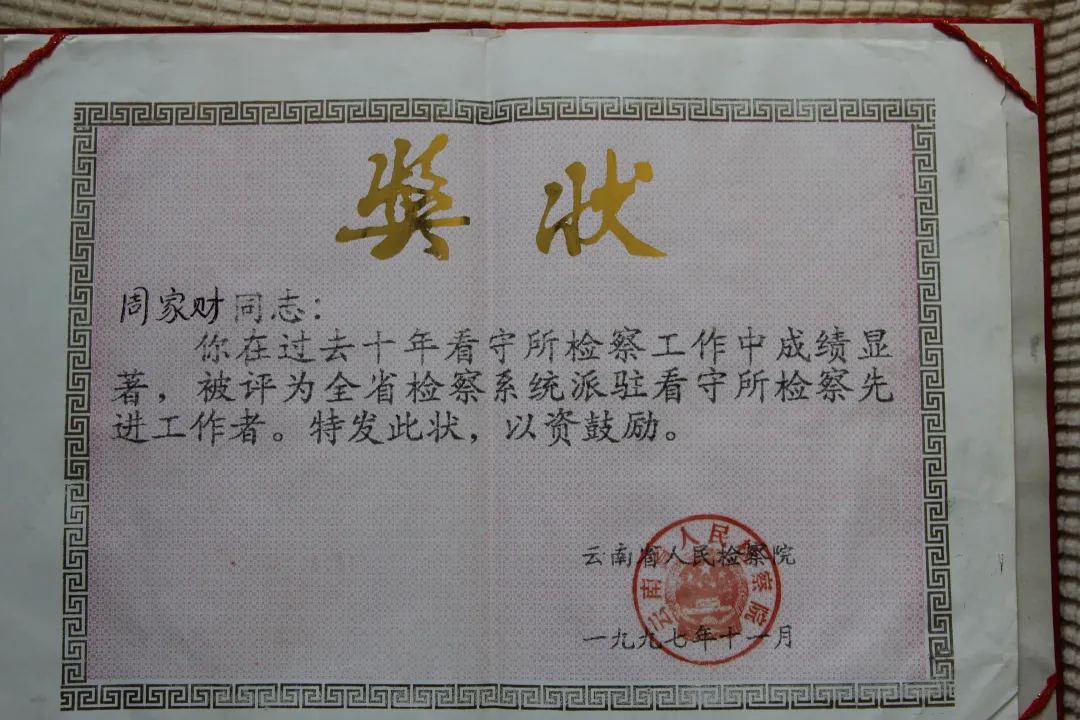 奖状
周家财同志：
你在过去十年看守所检察工作中成绩显
著，被评为全省检察系统派驻看守所检察先
进工作者。特发此状，以资鼓励。
云南省人民检察院
一九九七年十一月
云南省人民检察院